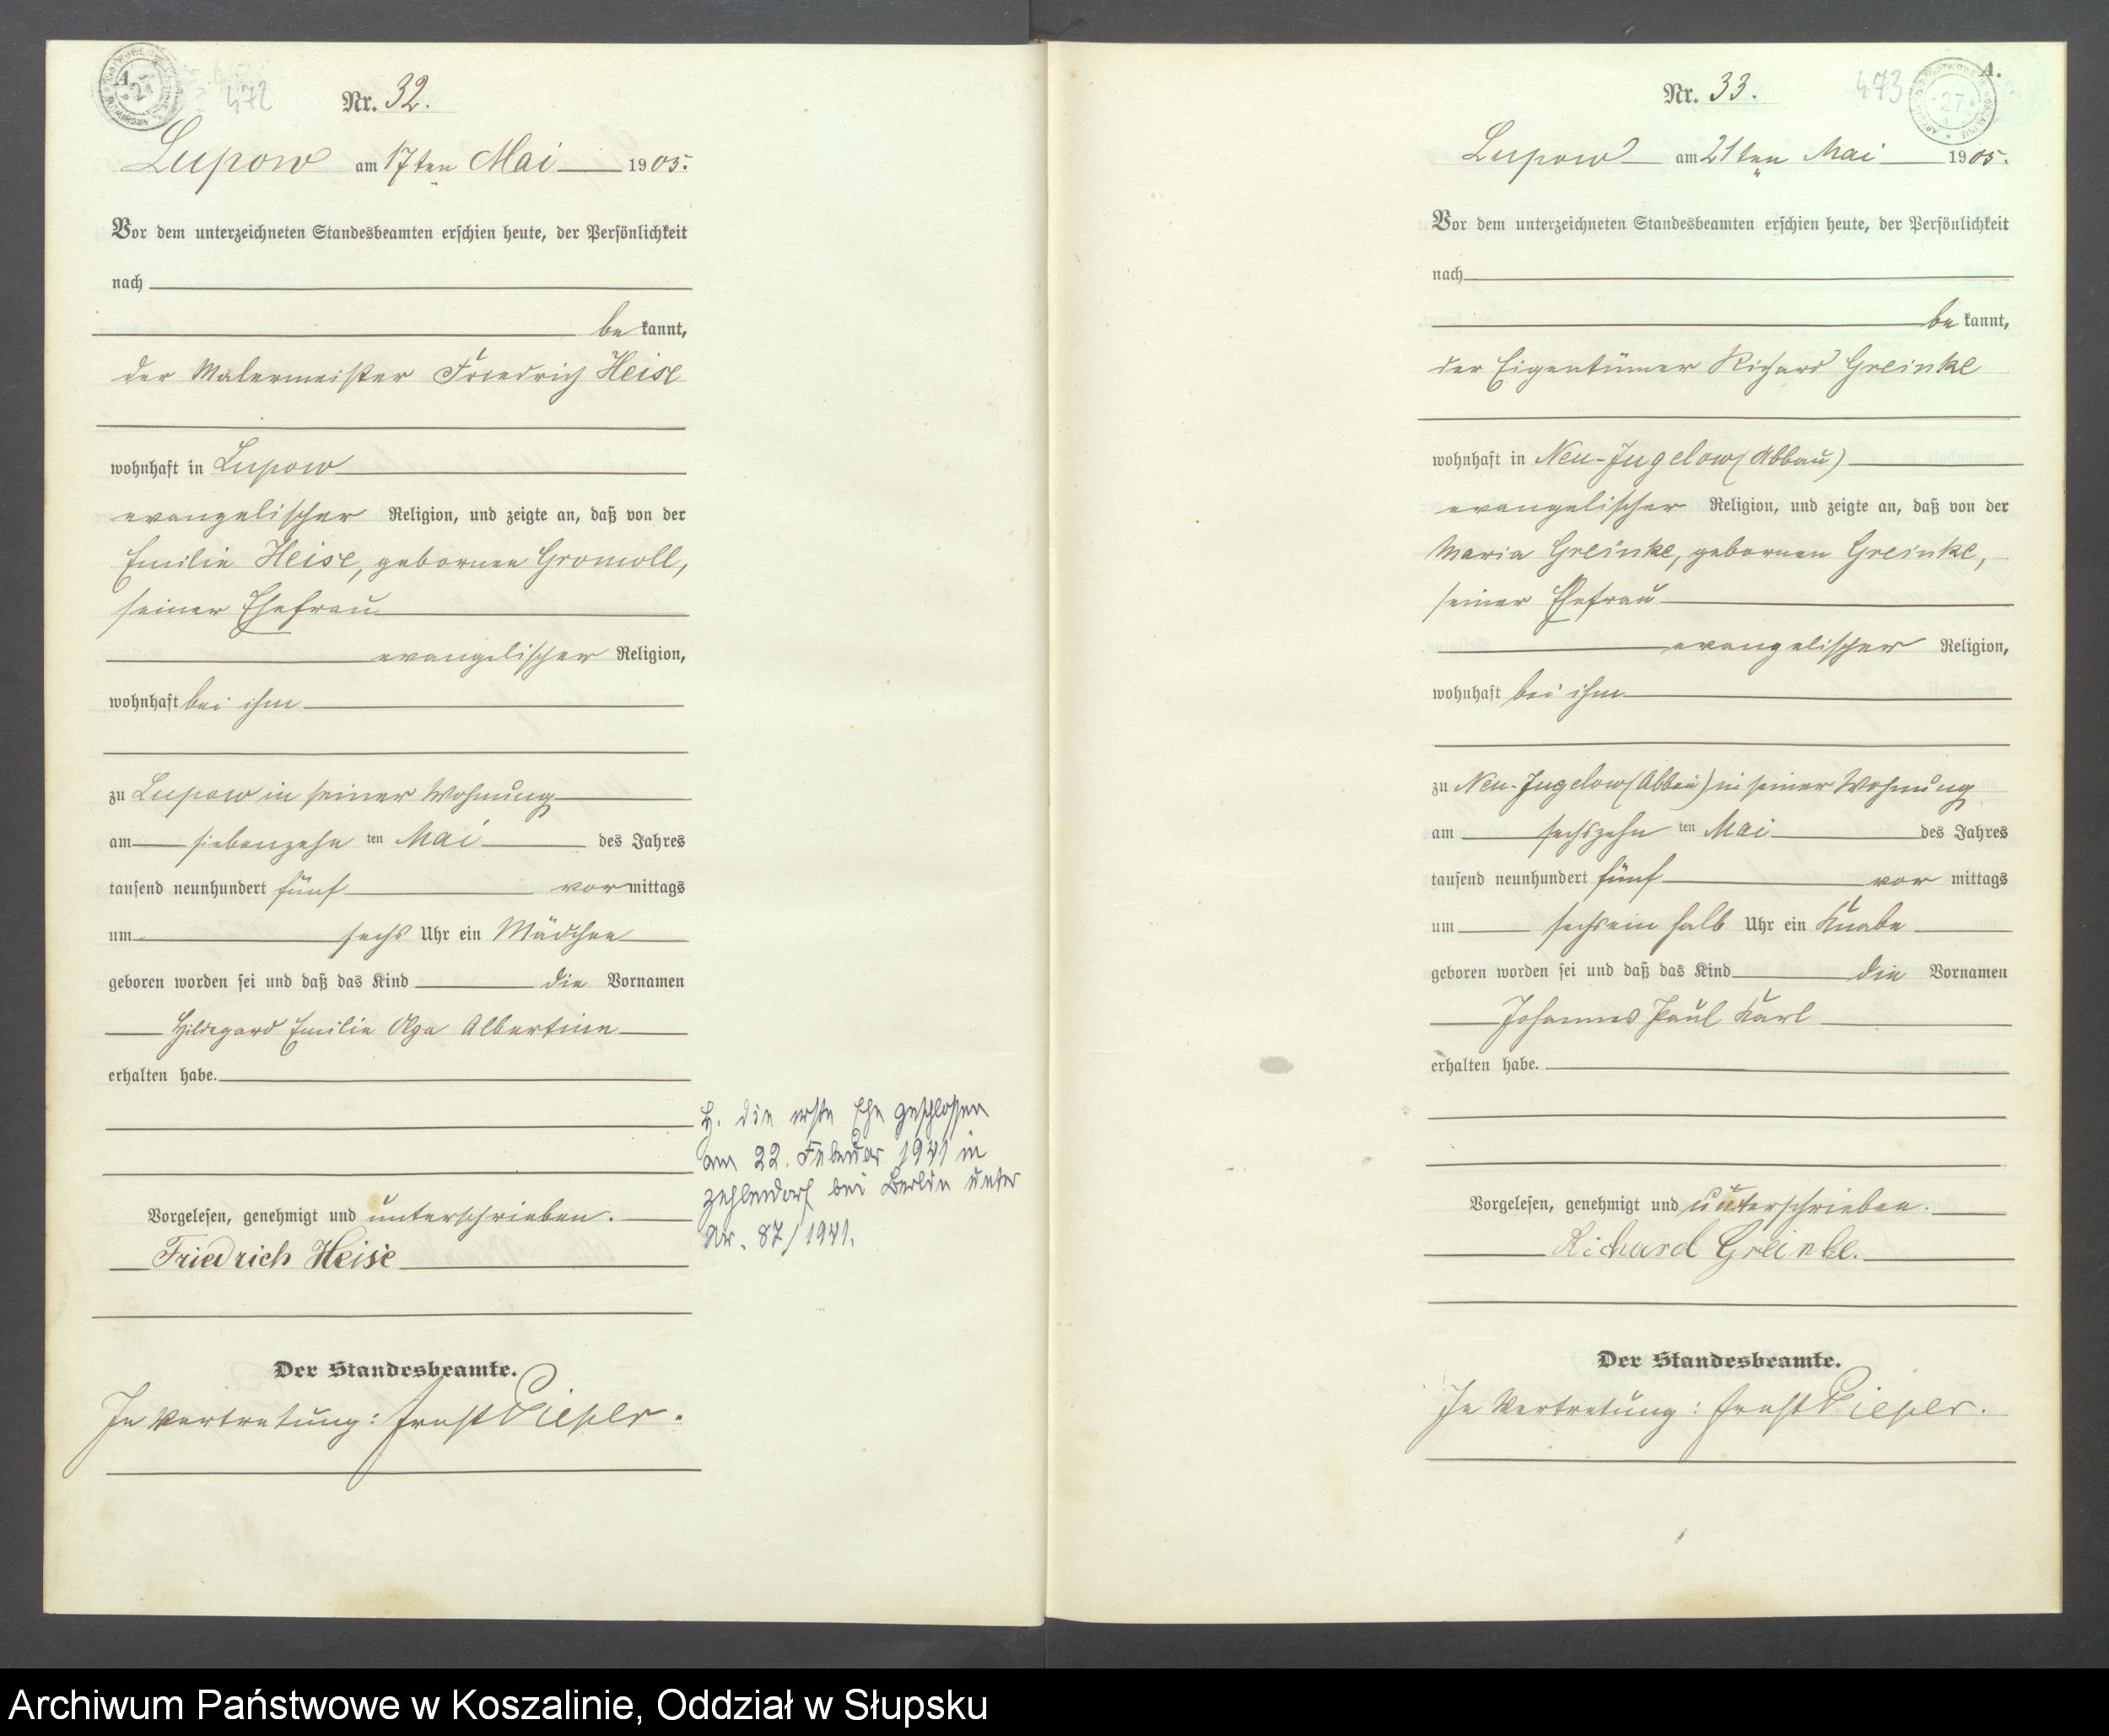 472
Nr. 32.
Lupow am 17ten Mai 1905.
Vor dem unterzeichneten Standesbeamten erschien heute, der Persönlichkeit
nach
be kannt,
der Malermeister Friedrich Heise
wohnhaft in Lupow
evangelischer Religion, und zeigte an, daß von der
Emilie Heise, gebornen Gromoll,
seiner Ehefrau
evangelischer Religion,
wohnhaft bei ihm
zu Lupow in seiner Wohnung
am siebenzehn ten Mai des Jahres
tausend neunhundert fünf vormittags
um sechs Uhr ein Mädchen
geboren worden sei und daß das Kind die Vornamen
Hildegard Emilie Olga Albertine
erhalten habe.
H. die erste Ehe geschlossen
am 22. Februar 1941 in
Zehlendorf bei Berlin unter
Nr. 87/1941.
Vorgelesen, genehmigt und unterschrieben.
Friedrich Heise
Der Standesbeamte.
In Vertretung: Ernst Pieper.
473
A.
27
Nr. 33.
Lupow am 21ten Mai 1905.
Vor dem unterzeichneten Standesbeamten erschien heute, der Persönlichkeit
nach
be kannt,
der Eigentümer Richard Greinke
wohnhaft in Neu-Jugelow (Abbau)
evangelischer Religion, und zeigte an, daß von der
Maria Greinke, gebornen Greinke,
seiner Ehefrau
evangelischer Religion,
wohnhaft bei ihm
zu Neu-Jugelow (Abbau) in seiner Wohnung
am sechszehn ten Mai des Jahres
tausend neunhundert fünf vor mittags
um sechsein halb Uhr ein Knabe
geboren worden sei und daß das Kind die Vornamen
Johannes Paul Karl
erhalten habe.
Vorgelesen, genehmigt und unterschrieben.
Richard Greinke.
Der Standesbeamte.
In Vertretung: Ernst Pieper.
Archiwum Państwowe w Koszalinie, Oddział w Słupsku